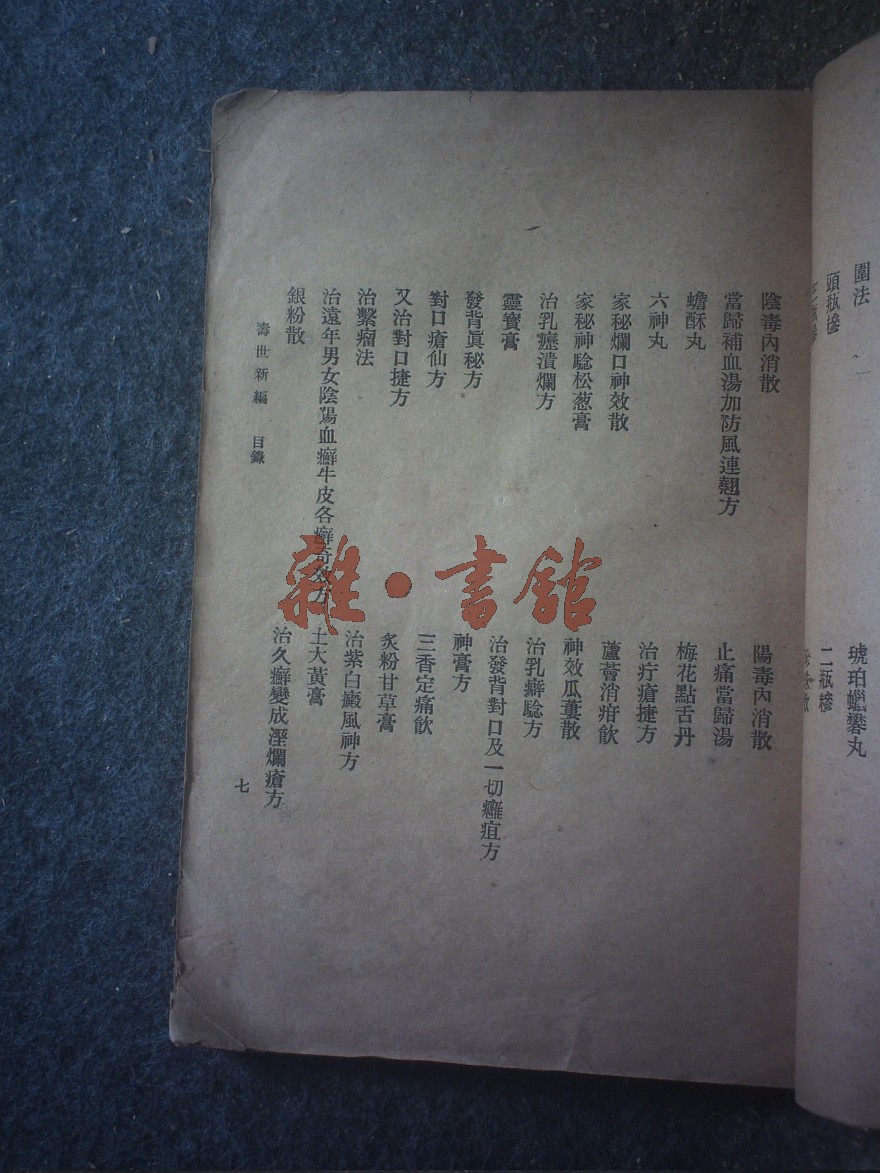 圍法
琥珀蠟礬丸
頭瓶摻
二瓶摻
陰毒內消散
陽毒內消散
當歸補血湯加防風連翹方
止痛當歸湯
蟾酥丸
梅花點舌丹
六神丸
治疔瘡捷方
家秘爛口神效散
蘆薈消疳飲
家秘神騐松葱膏
神效瓜蔞散
治乳癧潰爛方
治乳癖騐方
靈寶膏
治發背對口及一切癰疽方
發背眞秘方
神膏方
對口瘡仙方
三香定痛飲
又治對口捷方
炙粉甘草膏
治繫瘤法
治紫白癜風神方
治遠年男女陰陽血癬牛皮各癬奇效方
土大黃膏
銀粉散
治久癬變成溼爛瘡方
壽世新編 目錄
七
雜·書館